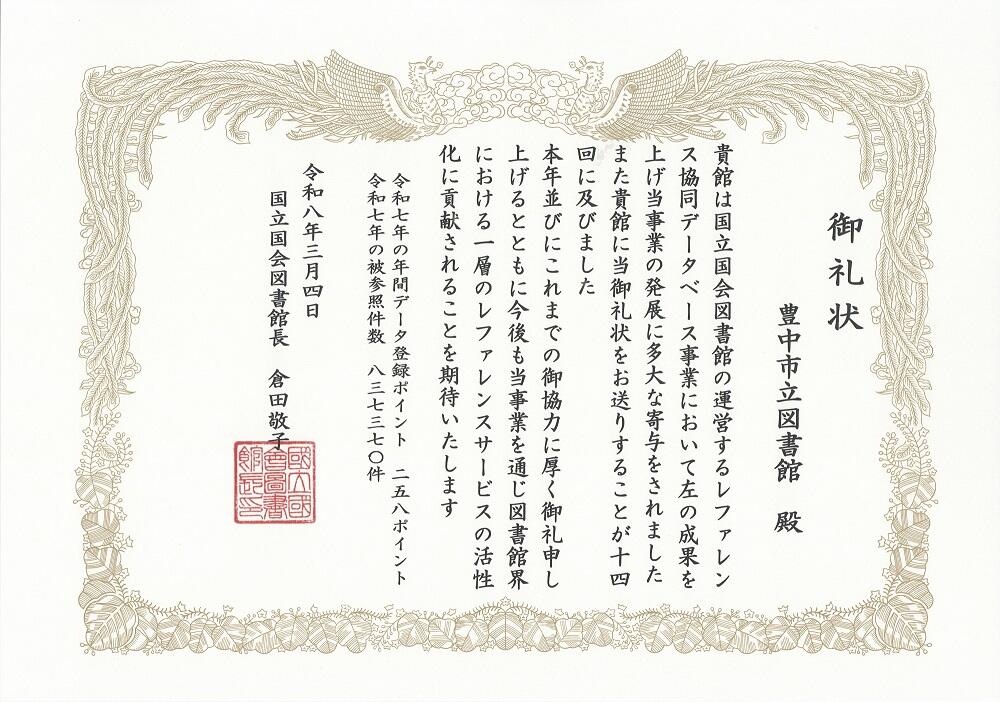 御礼状
豊中市立図書館　殿
貴館は国立国会図書館の運営するレファレン
ス協同データベース事業において左の成果を
上げ当事業の発展に多大な寄与をされました
また貴館に当御礼状をお送りすることが十四
回に及びました
本年並びにこれまでの御協力に厚く御礼申し
上げるとともに今後も当事業を通じ図書館界
における一層のレファレンスサービスの活性
化に貢献されることを期待いたします
令和七年の年間データ登録ポイント　二五八ポイント
令和七年の被参照件数　八三七三七〇件
令和八年三月四日
国立国会図書館長　倉田敬子
國立國
會圖書
館長印